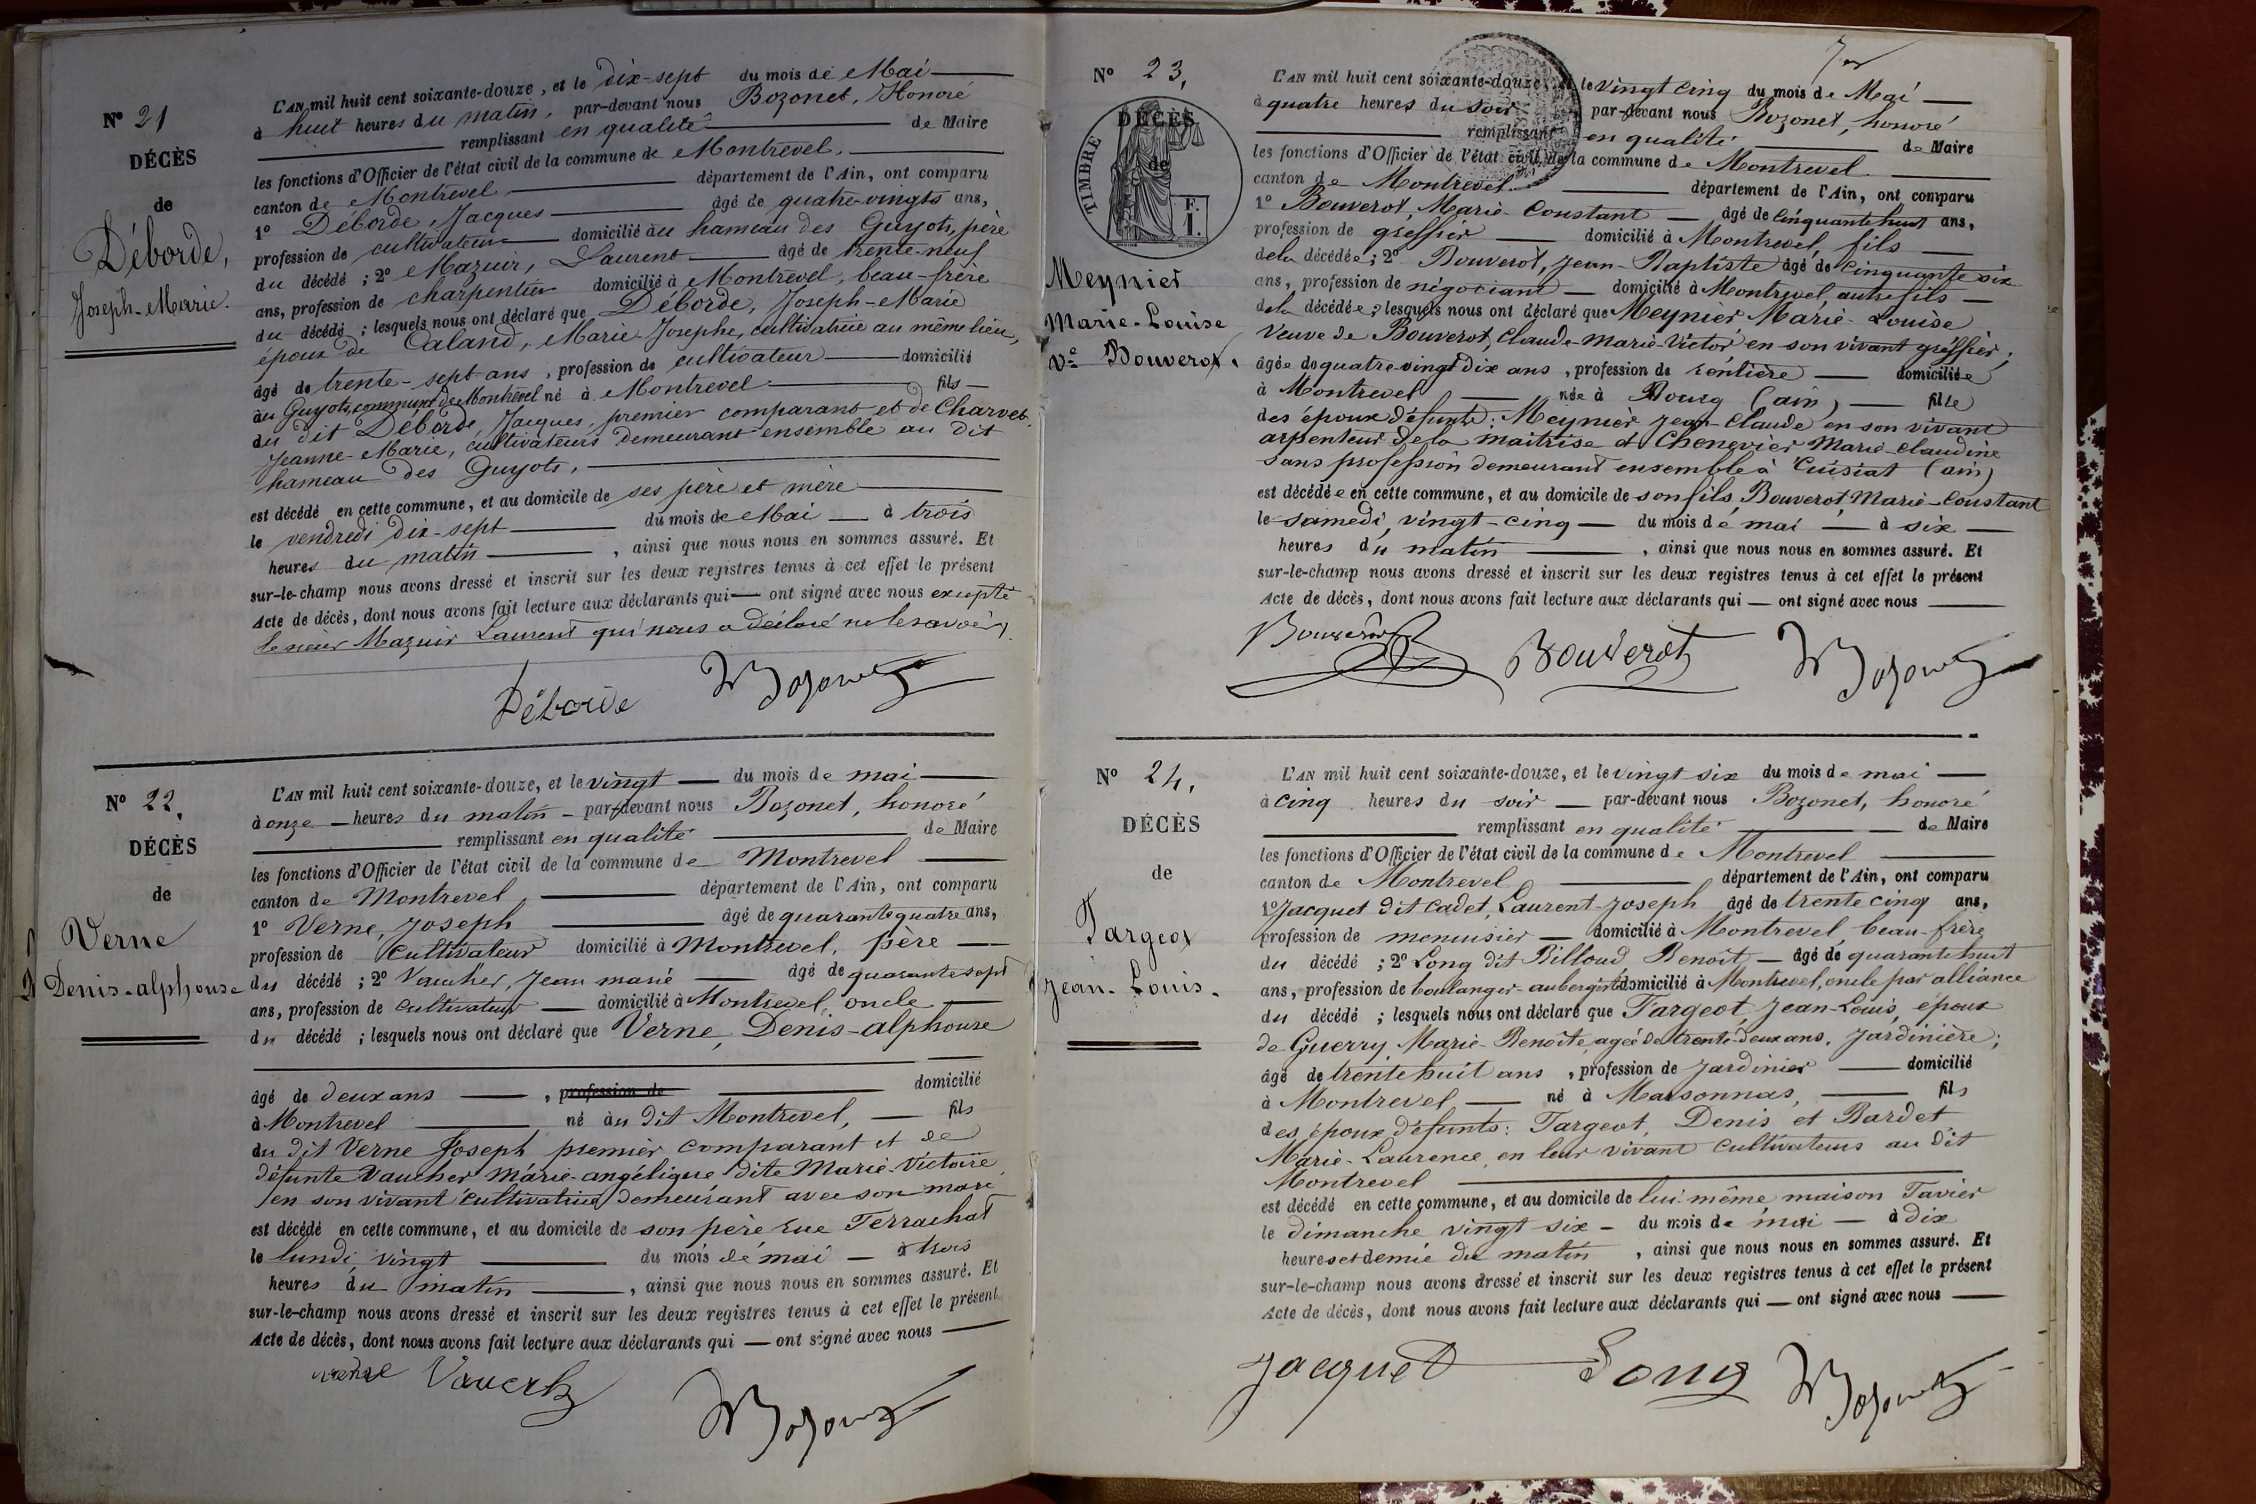 N° 21
DÉCÈS
de
Déborde,
Joseph-Marie.
L'AN mil huit cent soixante-douze, et le dix-sept du mois de Mai
à huit heures du matin, par-devant nous Bozonet, Honoré
remplissant en qualité de Maire
les fonctions d'Officier de l'état civil de la commune de Montrevel,
canton de Montrevel département de l'Ain, ont comparu
1° Déborde, Jacques âgé de quatre-vingts ans,
profession de cultivateur domicilié au hameau des Guyots, père
du décédé ; 2° Mazuir, Laurent âgé de trente-neuf
ans, profession de charpentier domicilié à Montrevel, beau-frère
du décédé ; lesquels nous ont déclaré que Déborde, Joseph-Marie
époux de Caland, Marie Josephe, cultivatrice au même lieu,
âgé de trente-sept ans, profession de cultivateur domicilié
au Guyots, commune de Montrevel né à Montrevel fils
du dit Déborde, Jacques, premier comparant et de Charvet
Jeanne-Marie, cultivateurs demeurant ensemble au dit
hameau des Guyots,
est décédé en cette commune, et au domicile de ses père et mère
le vendredi dix-sept du mois de Mai à trois
heures du matin, ainsi que nous nous en sommes assuré. Et
sur-le-champ nous avons dressé et inscrit sur les deux registres tenus à cet effet le présent
Acte de décès, dont nous avons fait lecture aux déclarants qui ont signé avec nous excepté
le sieur Mazuir Laurent qui nous a déclaré ne le savoir.
Déborde Bozonet
N° 22.
DÉCÈS
de
Verne
Denis-alphonse
L'AN mil huit cent soixante-douze, et le vingt du mois de mai
à onze heures du matin par-devant nous Bozonet, honoré
remplissant en qualité de Maire
les fonctions d'Officier de l'état civil de la commune de Montrevel
canton de Montrevel département de l'Ain, ont comparu
1° Verne, Joseph âgé de quarante quatre ans,
profession de Cultivateur domicilié à Montrevel, père
du décédé ; 2° Vaucher, Jean marie âgé de quarante sept
ans, profession de cultivateur domicilié à Montrevel, oncle
du décédé ; lesquels nous ont déclaré que Verne, Denis-alphonse
âgé de deux ans, profession de domicilié
à Montrevel né au dit Montrevel, fils
du dit Verne Joseph premier comparant et de
défunte Vaucher Marie-angélique dite Marie-Victoire,
en son vivant cultivatrice demeurant avec son mari
est décédé en cette commune, et au domicile de son père rue Terrachat
le lundi, vingt du mois de mai à trois
heures du matin, ainsi que nous nous en sommes assuré. Et
sur-le-champ nous avons dressé et inscrit sur les deux registres tenus à cet effet le présent
Acte de décès, dont nous avons fait lecture aux déclarants qui ont signé avec nous
verne Vaucher Bozonet
N° 23.
TIMBRE
DÉCÈS
de
F.
1.
Meynier
Marie-Louise
Ve Bouverot.
L'AN mil huit cent soixante-douze, et le vingt cinq du mois de Mai
à quatre heures du soir par-devant nous Bozonet, honoré
remplissant en qualité de Maire
les fonctions d'Officier de l'état civil de la commune de Montrevel
canton de Montrevel département de l'Ain, ont comparu
1° Bouverot, Marie-Constant âgé de Cinquante huit ans,
profession de greffier domicilié à Montrevel, fils
de la décédée ; 2° Bouverot, Jean-Baptiste âgé de Cinquante six
ans, profession de négociant domicilié à Montrevel, autre fils
de la décédée ; lesquels nous ont déclaré que Meynier Marie-Louise
Veuve de Bouverot, Claude-Marie-Victor, en son vivant greffier ;
âgée de quatre-vingt dix ans, profession de rentière domiciliée
à Montrevel née à Bourg (ain) fille
des époux défunts : Meynier Jean-Claude en son vivant
arpenteur de la maitrise et Chenevier Marie-Claudine
sans profession demeurant ensemble à Cuisiat (ain)
est décédée en cette commune, et au domicile de son fils, Bouverot, Marie-Constant
le samedi, vingt-cinq du mois de mai à six
heures du matin, ainsi que nous nous en sommes assuré. Et
sur-le-champ nous avons dressé et inscrit sur les deux registres tenus à cet effet le présent
Acte de décès, dont nous avons fait lecture aux déclarants qui ont signé avec nous
Bouverot Bouverot Bozonet
N° 24.
DÉCÈS
de
Targeot
Jean-Louis.
L'AN mil huit cent soixante-douze, et le vingt six du mois de mai
à cinq heures du soir par-devant nous Bozonet, honoré
remplissant en qualité de Maire
les fonctions d'Officier de l'état civil de la commune de Montrevel
canton de Montrevel département de l'Ain, ont comparu
1° Jacquet dit Cadet, Laurent-Joseph âgé de trente cinq ans,
profession de menuisier domicilié à Montrevel, beau-frère
du décédé ; 2° Long dit Billoud Benoit, âgé de quarante huit
ans, profession de boulanger-aubergiste domicilié à Montrevel, oncle par alliance
du décédé ; lesquels nous ont déclaré que Targeot, Jean-Louis, époux
de Guerry Marie-Benoîte, agée de trente-deux ans, Jardinière ;
âgé de trente huit ans, profession de Jardinier domicilié
à Montrevel né à Marsonnas, fils
des époux défunts : Targeot, Denis et Bardet
Marie-Laurence, en leur vivant Cultivateurs au dit
Montrevel
est décédé en cette commune, et au domicile de lui même maison Tavier
le dimanche vingt six du mois de mai à dix
heures et demie du matin, ainsi que nous nous en sommes assuré. Et
sur-le-champ nous avons dressé et inscrit sur les deux registres tenus à cet effet le présent
Acte de décès, dont nous avons fait lecture aux déclarants qui ont signé avec nous
Jacquet Long Bozonet